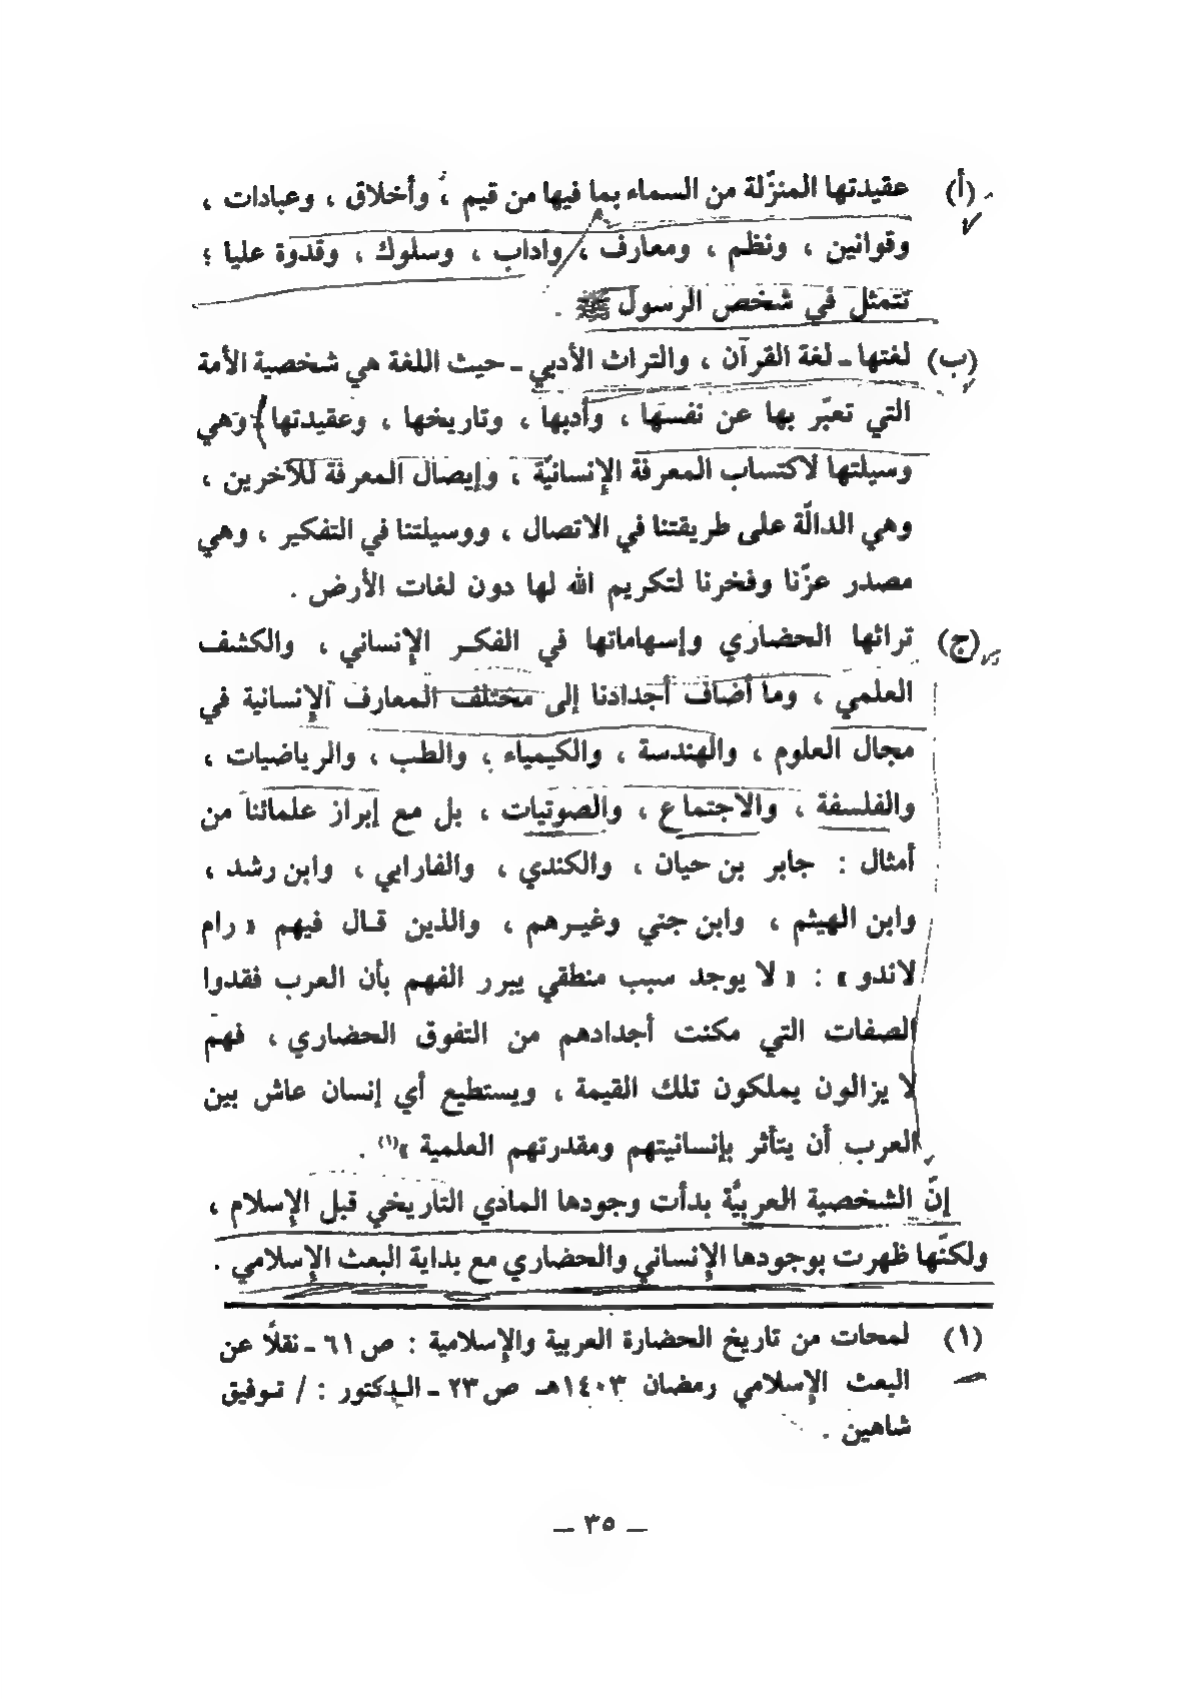 (أ) عقيدتها المنزّلة من السماء بما فيها من قيم ، وأخلاق ، وعبادات ،
وقوانين ، ونظم ، ومعارف ، واداب ، وسلوك ، وقدوة عليا ؛
تتمثل في شخص الرسول ﷺ .
(ب) لغتها ـ لغة القرآن ، والتراث الأدبي ـ حيث اللغة هي شخصية الأمة
التي تعبّر بها عن نفسها ، وأدبها ، وتاريخها ، وعقيدتها ، وهي
وسيلتها لاكتساب المعرفة الإنسانيّة ، وإيصال المعرفة للآخرين ،
وهي الدالّة على طريقتنا في الاتصال ، ووسيلتنا في التفكير ، وهي
مصدر عزّنا وفخرنا لتكريم الله لها دون لغات الأرض .
(ج) تراثها الحضاري وإسهاماتها في الفكر الإنساني ، والكشف
العلمي ، وما أضاف أجدادنا إلى مختلف المعارف الإنسانية في
مجال العلوم ، والهندسة ، والكيمياء ، والطب ، والرياضيات ،
والفلسفة ، والاجتماع ، والصوتيات ، بل مع إبراز علمائنا من
أمثال : جابر بن حيان ، والكندي ، والفارابي ، وابن رشد ،
وابن الهيثم ، وابن جني وغيرهم ، والذين قال فيهم « رام
لاندو » : « لا يوجد سبب منطقي يبرر الفهم بأن العرب فقدوا
الصفات التي مكنت أجدادهم من التفوق الحضاري ، فهم
لا يزالون يملكون تلك القيمة ، ويستطيع أي إنسان عاش بين
العرب أن يتأثر بإنسانيتهم ومقدرتهم العلمية »(١) .
إنّ الشخصية العربيّة بدأت وجودها المادي التاريخي قبل الإسلام ،
ولكنّها ظهرت بوجودها الإنساني والحضاري مع بداية البعث الإسلامي .
(١) لمحات من تاريخ الحضارة العربية والإسلامية : ص ٦١ ـ نقلًا عن
البعث الإسلامي رمضان ١٤٠٣هـ ص ٢٣ ـ الدكتور : / توفيق
شاهين .
ـ ٣٥ ـ